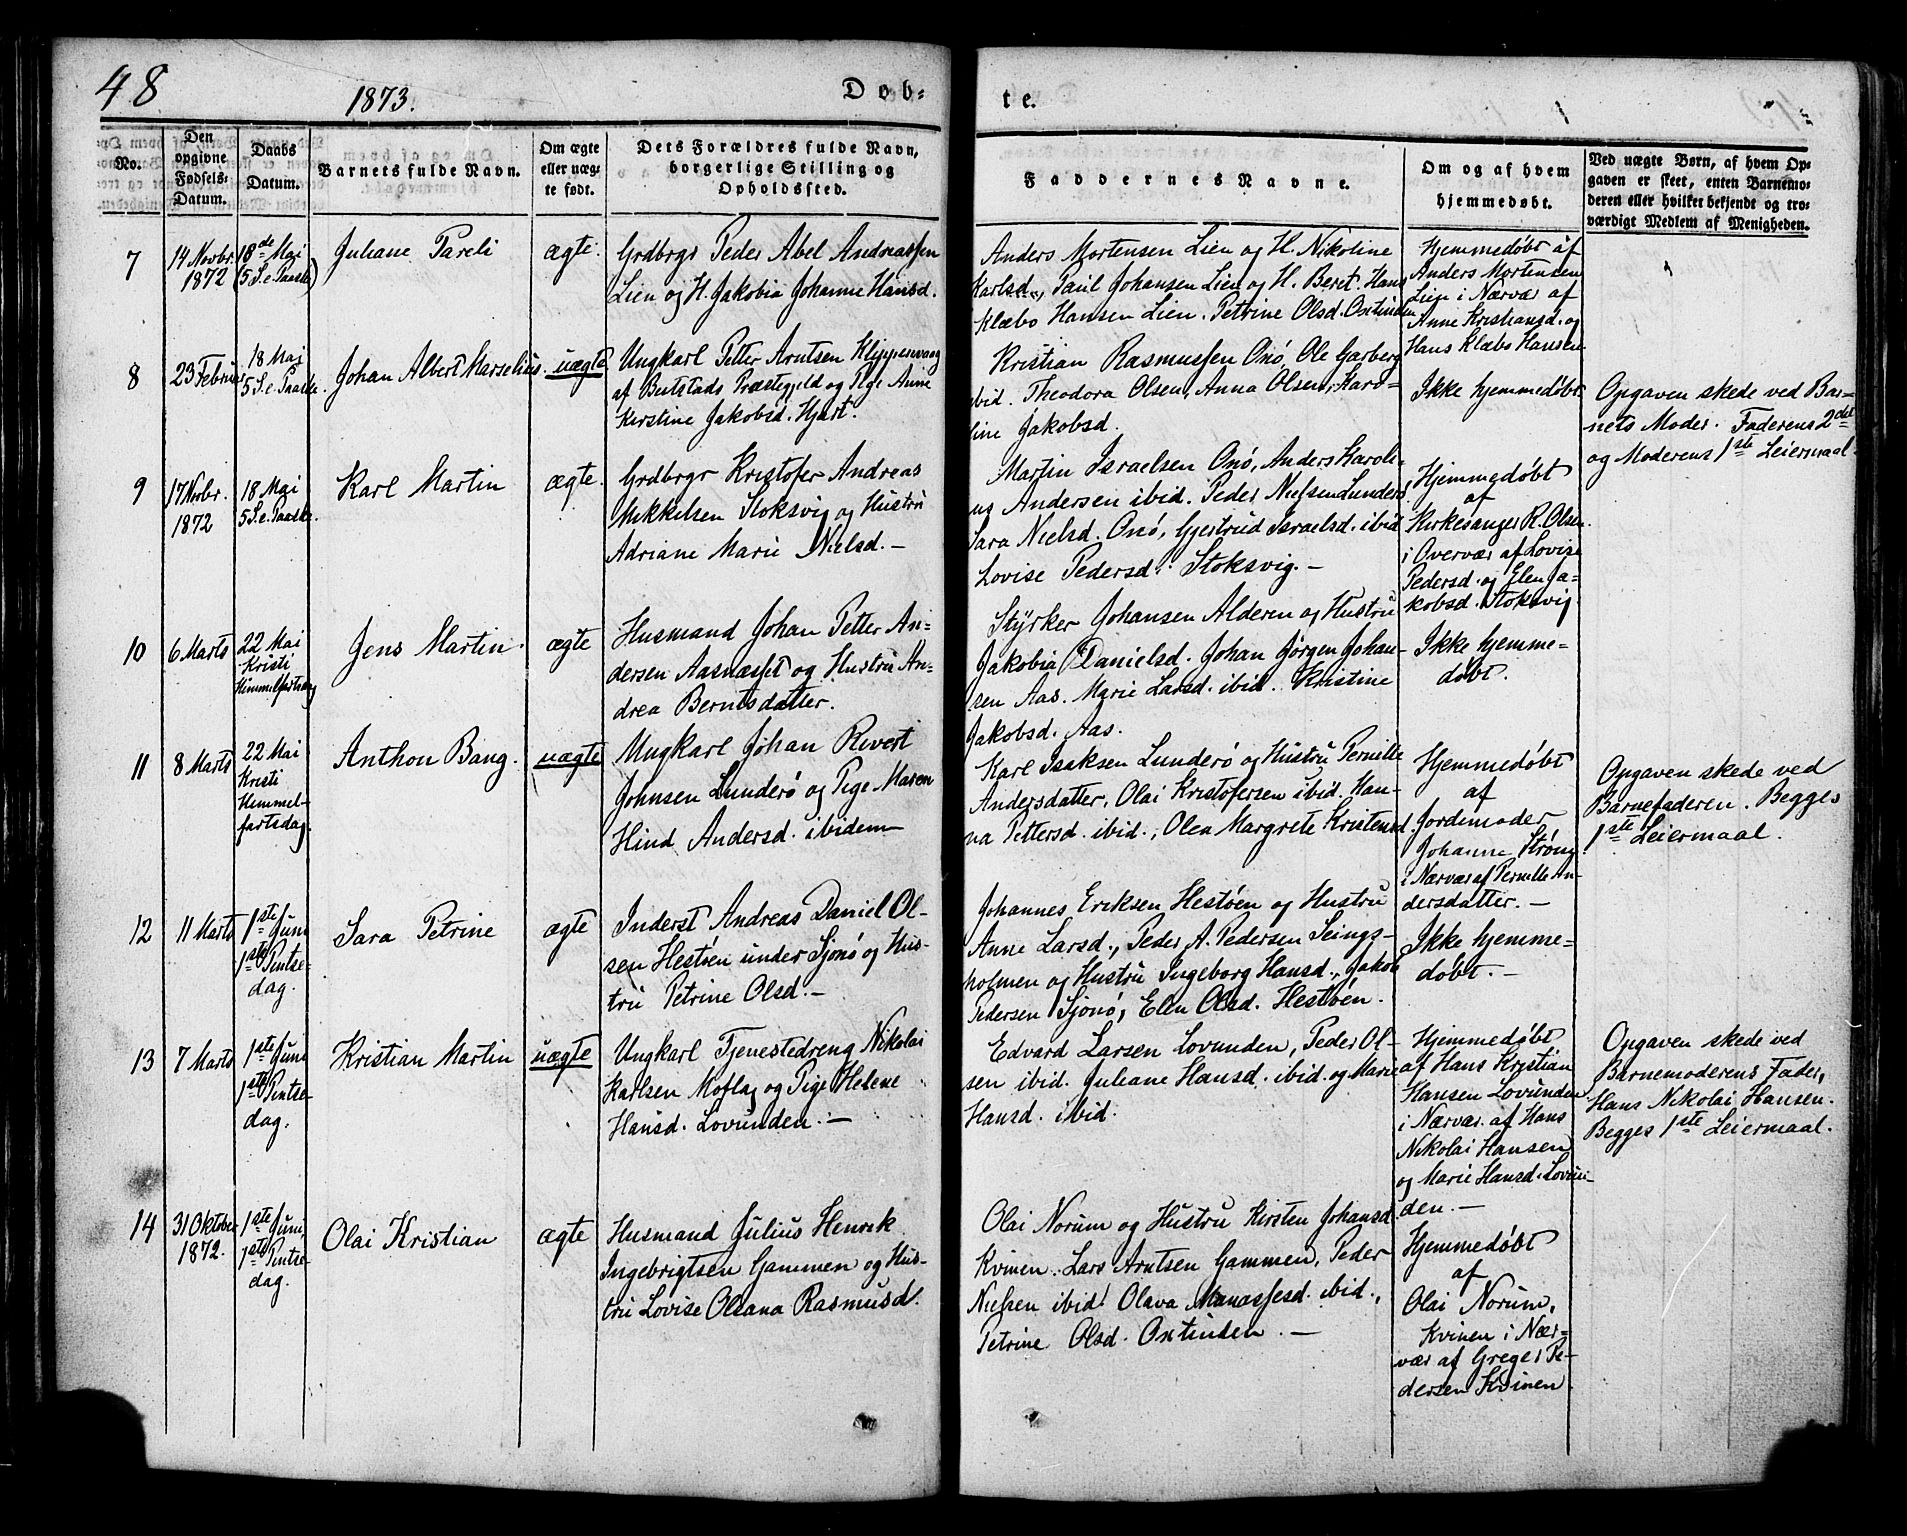 48
1873.
Døb-
te.
No.
Den
opgivne
Fødsels-
Datum.
Daabs
Datum.
Barnets fulde Navn.
Om ægte
eller uæg-
te født.
Dets Forældres fulde Navn,
borgerlige Stilling og
Opholdssted.
Faddernes Navne.
Om og af hvem
hjemmedøbt.
Ved uægte Børn, af hvem Op-
gaven er skeet, enten Barnemo-
deren eller hvilket bekjendt og tro-
værdigt Medlem af Menigheden.
7
14 Novbr.
1872
18de Mai
(5 S. e. Paaske)
Juliane Pareli
ægte.
Grdbrgr Peder Abel Andreassen
Lien og H. Jakobia Johanne Hansd.
Anders Mortensen Lien og H. Nikoline
Karlsd., Paul Johansen Lien og H. Beret. Hans
Klæbo Hansen Lien. Petrine Olsd. Oxtinden
Hjemmedøbt af
Anders Mortensen
Lien i Nærvær af
Anne Kristiansd. og
Hans Klæbo Hansen
8
23 Februar
18 Mai
5 S. e. Paaske.
Johan Albert Marselius.
uægte
Ungkarl Petter Arntsen Klippenvaag
af Butstads Præstegjeld og Pige Anne
Kerstine Jakobsd. Hjart.
Kristian Rasmussen Onø, Ole Garberg
ibid. Theodora Olsen, Anna Olsen, Karo-
line Jakobsd.
Ikke hjemmedøbt
Opgaven skede ved Bar-
nets Moder. Faderens 2det
og Moderens 1ste Leiermaal.
9
17 Novbr.
1872
18 Mai
5 S. e. Paaske.
Karl Martin
ægte.
Grdbrgr Kristofer Andreas
Mikkelsen Stoksvig og Hustru
Adriane Marie Nielsd. —
Martin Israelsen Onø, Anders Karoli-
us Andersen ibid. Peder Nielsen Lunderø,
Sara Nielsd. Onø, Gjertrud Israelsd. ibid
Lovise Pedersd. Stoksvig. —
Hjemmedøbt
af
Kirkesanger R. Olsen.
i Overvær af Lovise
Pedersd. og Elen Ja-
kobsd. Stoksvig
10
6 Marts
22 Mai
Kristi
Himmelfartsdag
Jens Martin.
ægte
Husmand Johan Petter An-
dersen Aasnæsset og Hustru An-
drea Berntsdatter.
Styrker Johansen Alderen og Hustru
Jakobia Danielsd. Johan Jörgen Johan-
sen Aas. Marie Larsd. ibid. Kristine
Jakobsd. Aas.
Ikke hjemme-
døbt.
11
8 Marts
22 Mai
Kristi
Himmel-
fartsdag.
Anthon Bang.
uægte
Ungkarl Johan Rivert
Johnsen Lunderö og Pige Maren
Hind Andersd. ibidem
Karl Isaksen Lunderö og Hustru Pernille
Andersdatter, Olai Kristofersen ibid. Han-
na Pettersd. ibid., Olea Margrete Kristensd.
Hjemmedøbt
af
Jordemoder
Johanne Strøm
i Nærvær af Pernille An-
dersdatter. —
Opgaven skede ved
Barnefaderen. Begges
1ste Leiermaal.
12
11 Marts
1ste Juni
1ste Pintse-
dag.
Sara Petrine
ægte
Inderst Andreas Daniel Ol-
sen Hestøen under Sjonö og Hus-
tru Petrine Olsd. —
Johannes Eriksen Hestøen og Hustru
Anne Larsd., Peder A. Pedersen Seings-
holmen og Hustru Ingeborg Hansd., Jakob
Pedersen Sjonö, Elen Olsd. Hestøen.
Ikke hjemme-
døbt. —
13
7 Marts
1ste Juni
1ste Pintse-
dag.
Kristian Martin
uægte
Ungkarl Tjenestedreng Nikolai
Karlsen Moflag og Pige Helene
Hansd. Lovunden. —
Edvard Larsen Lovunden, Peder Ol-
sen ibid. Juliane Hansd. ibid. og Marie
Hansd. ibid.
Hjemmedøbt
af Hans Kristian
Hansen Lovunden
i Nærvær. af Hans
Nikolai Hansen
og Marie Hansd. Lovun-
den. —
Opgaven skede ved
Barnemoderens Fader,
Hans Nikolai Hansen.
Begges 1ste Leiermaal.
14
31 Oktober
1872.
1ste Juni,
1ste Pintse-
dag.
Olai Kristian
ægte
Husmand Julius Henrik
Ingebrigtsen Gammen og Hus-
tru Lovise Oleana Rasmusd.
Olai Norum og Hustru Kirsten Johansd.
Kvinen. Lars Arntsen Gammen, Peder
Nielsen ibid. Olava Manassesd. ibid.,
Petrine Olsd. Oxtinden. —
Hjemmedøbt
af
Olai Norum,
Kvinen i Nær-
vær af Greger Pe-
dersen Kvinen.